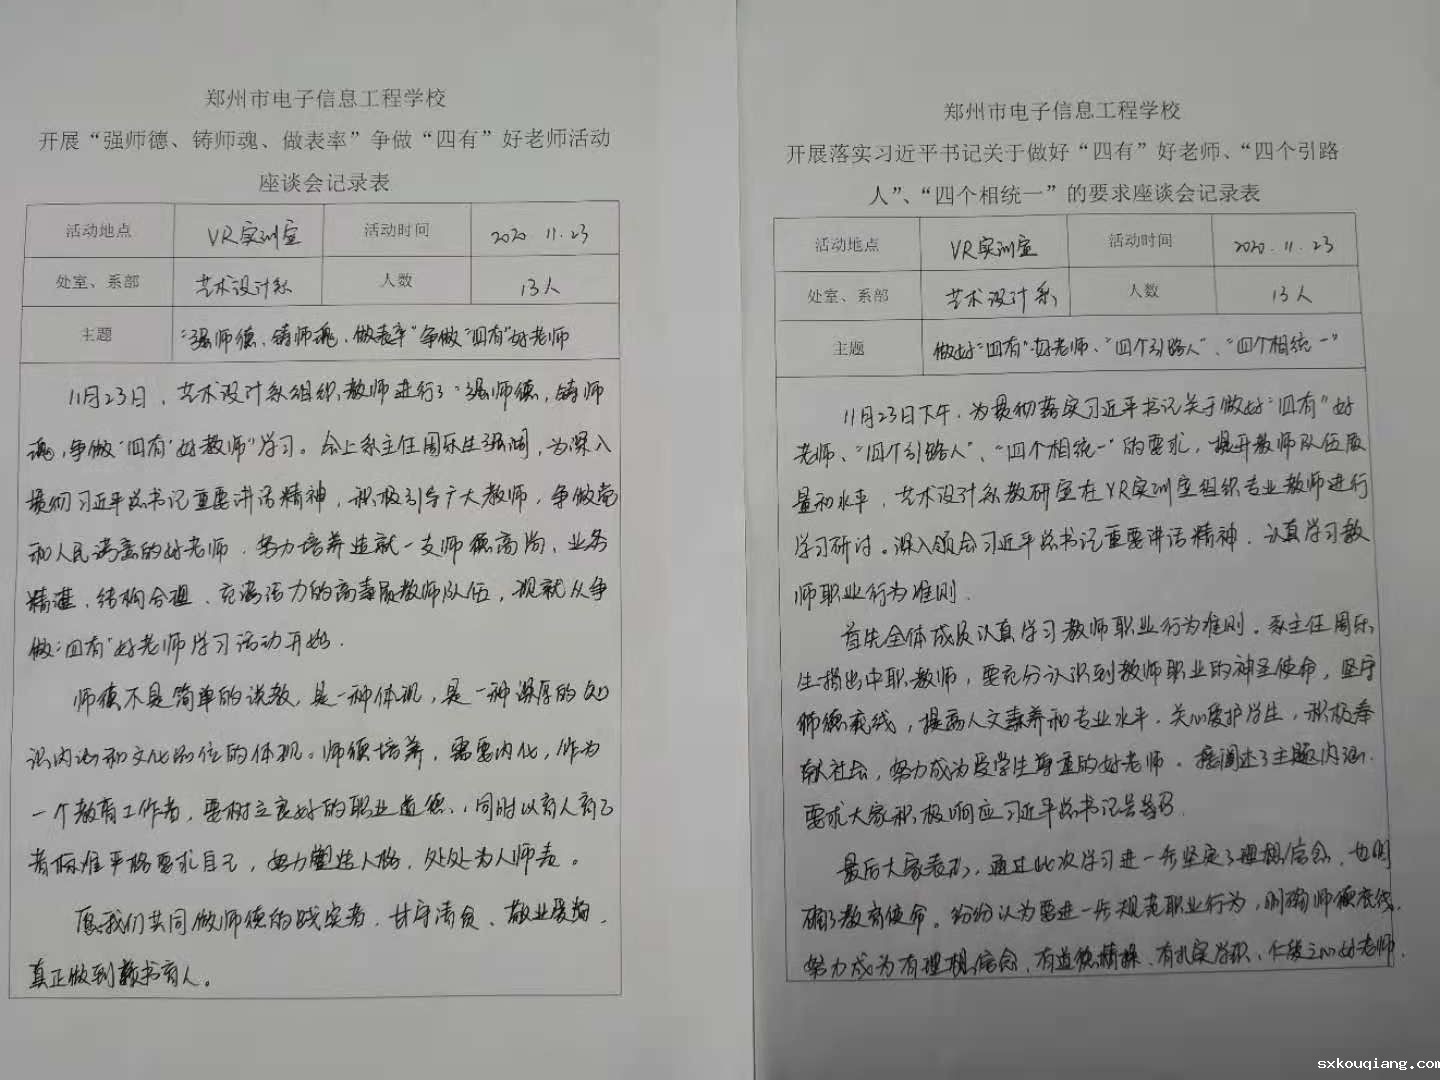 郑州市电子信息工程学校
开展“强师德、铸师魂、做表率”争做“四有”好老师活动
座谈会记录表
活动地点 VR实训室 活动时间 2020.11.23
处室、系部 艺术设计系 人数 13人
主题 “强师德、铸师魂、做表率”争做“四有”好老师
11月23日，艺术设计系组织教师进行了“强师德，铸师
魂，争做“四有”好教师”学习。会上系主任周乐生强调，为深入
贯彻习近平总书记重要讲话精神，积极引导广大教师，争做党
和人民满意的好老师，努力培养造就一支师德高尚、业务
精湛、结构合理、充满活力的高素质教师队伍，现就从争
做“四有”好老师学习活动开始.
师德不是简单的说教，是一种体现，是一种深厚的知
识内涵和文化品位的体现。师德培养，需要内化，作为
一个教育工作者，要树立良好的职业道德，同时以育人育己
者标准严格要求自己，努力塑造人格，处处为人师表。
愿我们共同做师德的践实者，甘守清贫、敬业爱岗，
真正做到教书育人。
郑州市电子信息工程学校
开展落实习近平书记关于做好“四有”好老师、“四个引路
人”、“四个相统一”的要求座谈会记录表
活动地点 VR实训室 活动时间 2020.11.23
处室、系部 艺术设计系 人数 13人
主题 做好“四有”好老师、“四个引路人”、“四个相统一”
11月23日下午，为贯彻落实习近平书记关于做好“四有”好
老师、“四个引路人”、“四个相统一”的要求，提升教师队伍质
量和水平，艺术设计系教研室在VR实训室组织专业教师进行
学习研讨。深入领会习近平总书记重要讲话精神，认真学习教
师职业行为准则.
首先全体成员认真学习教师职业行为准则。系主任周乐
生指出中职教师，要充分认识到教师职业的神圣使命，坚守
师德底线，提高人文素养和专业水平，关心爱护学生，积极奉
献社会，努力成为受学生尊重的好老师。接阐述了主题内涵.
要求大家积极响应习近平总书记号召.
最后大家表示，通过此次学习进一步坚定了理想信念，也明
确了教育使命。纷纷认为要进一步规范职业行为，明确师德底线，
努力成为有理想信念、有道德情操、有扎实学识、仁爱之心好老师.
sxkouqiang.com